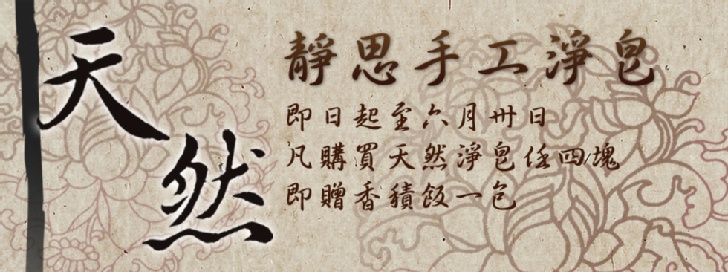 天然
靜思手工淨皂
即日起至六月卅日
凡購買天然淨皂任四塊
即贈香積飯一包